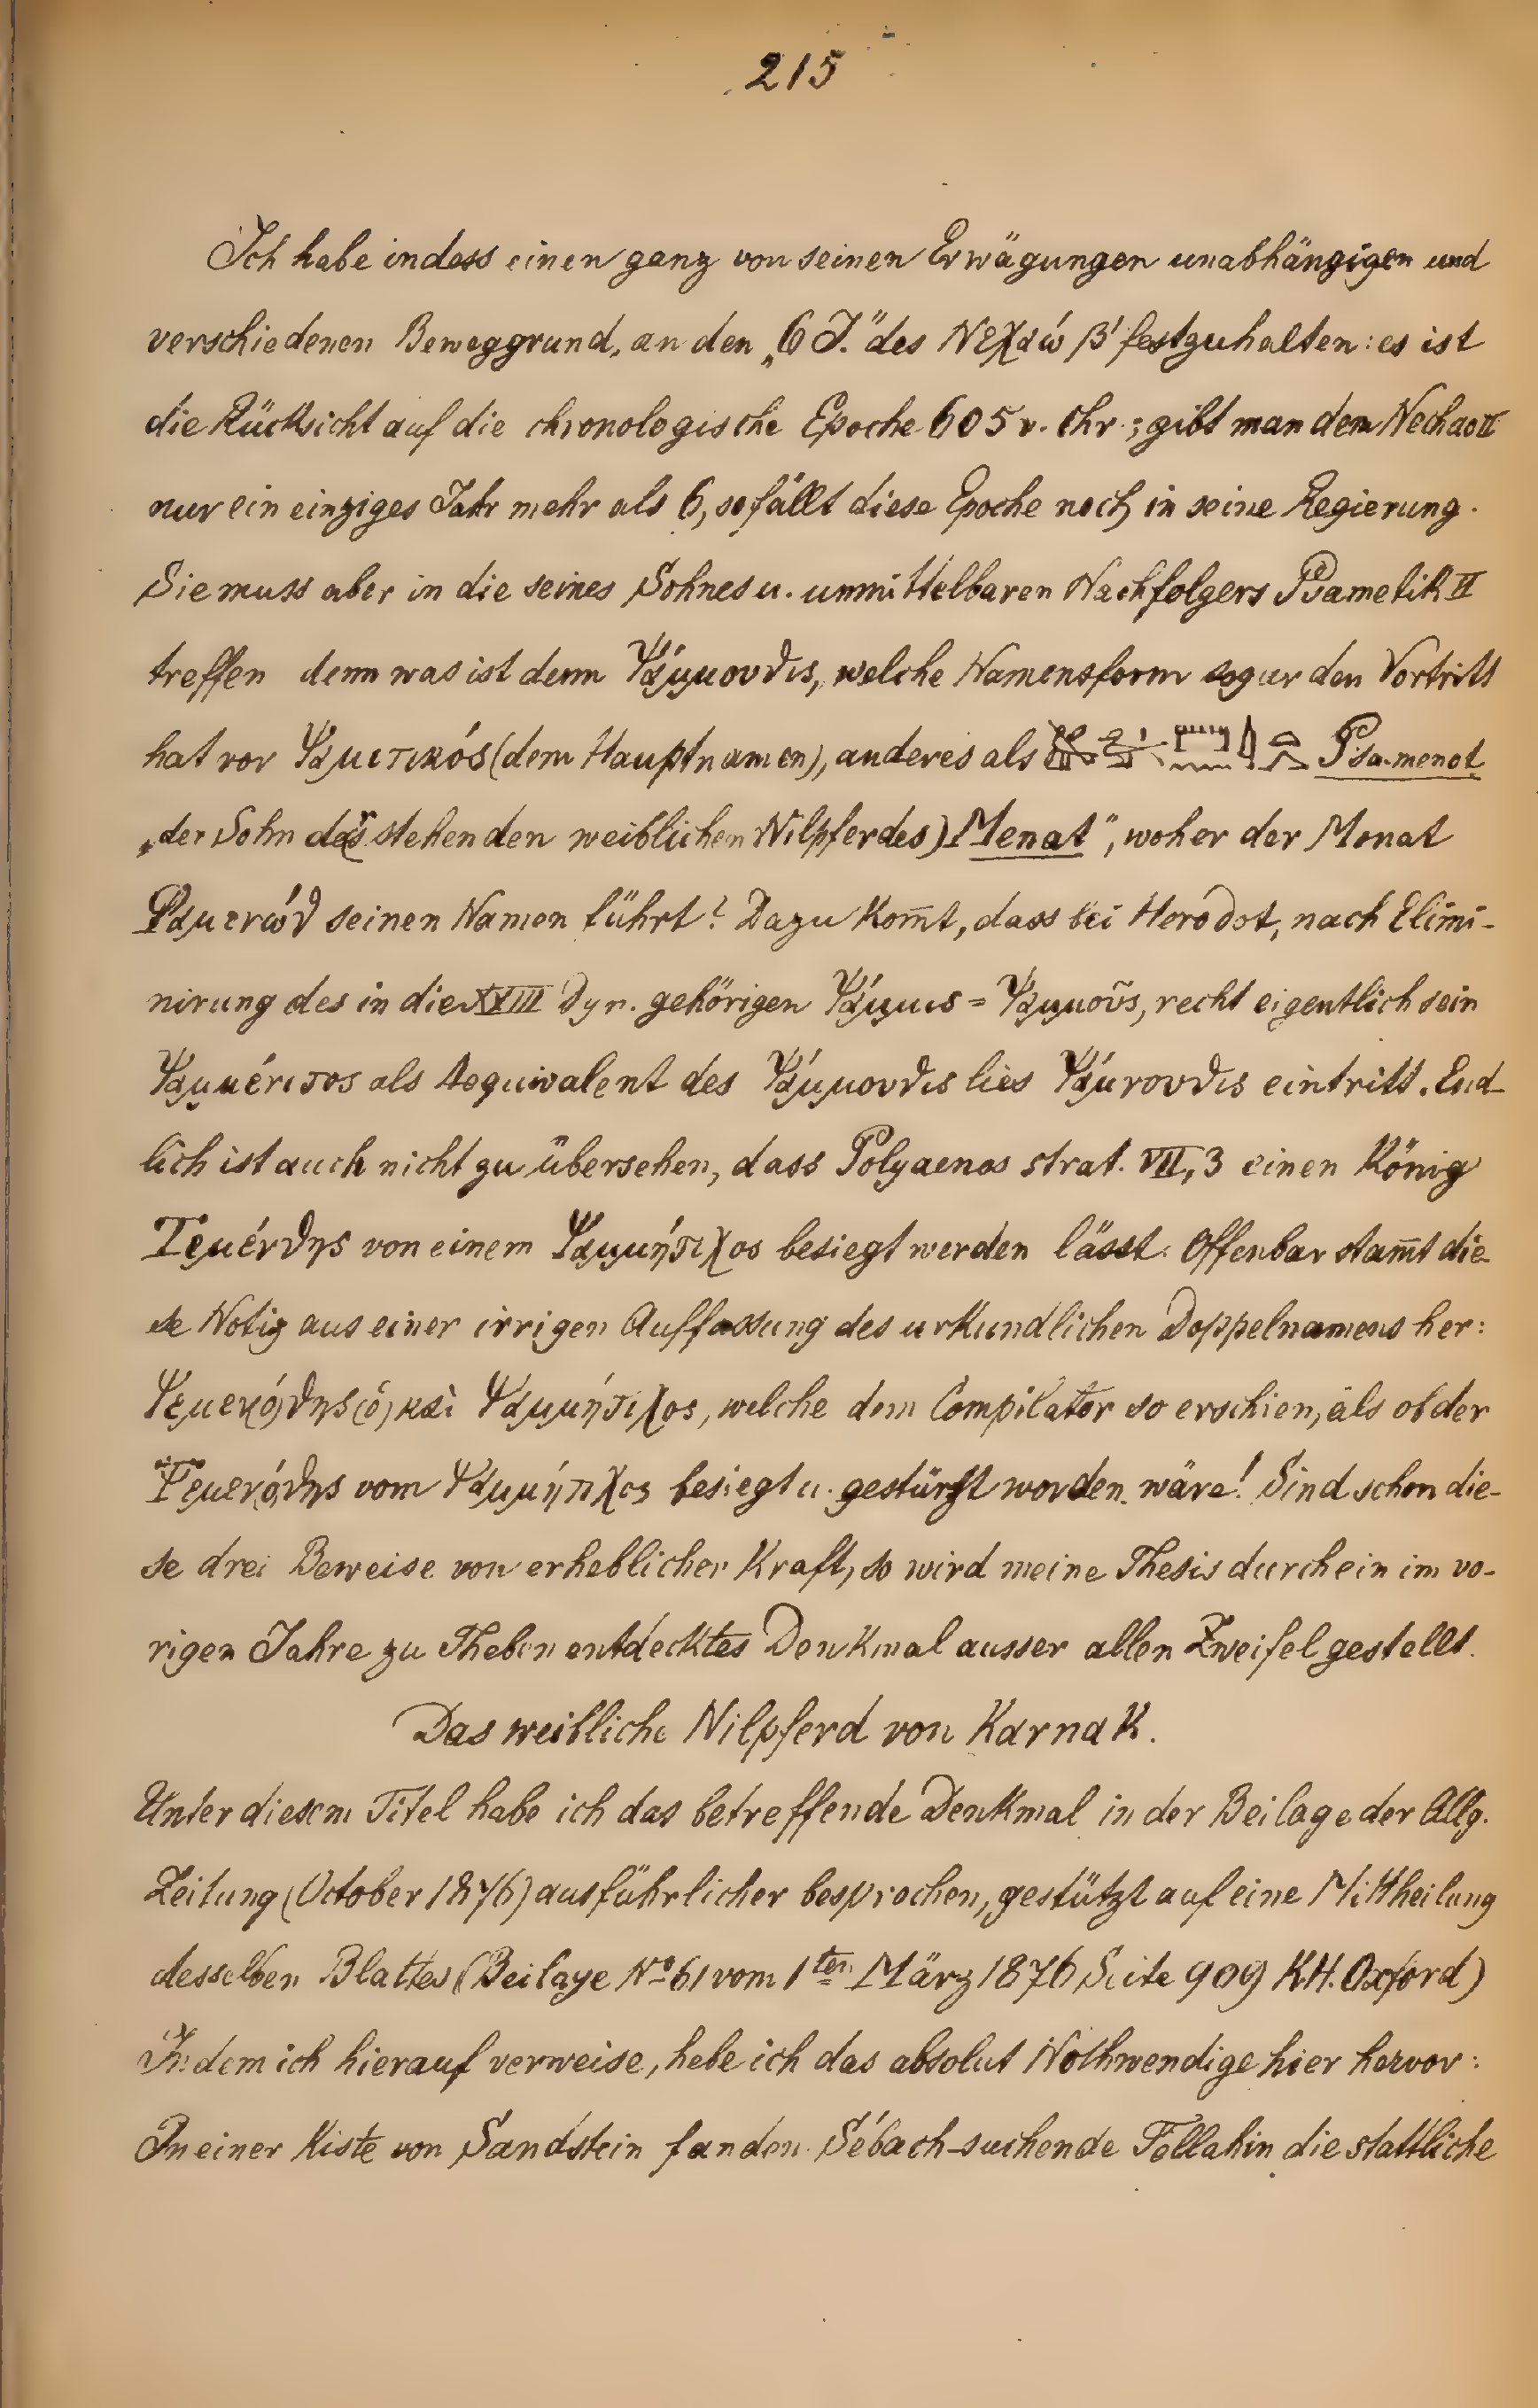 215
Ich habe indess einen ganz von seinen Erwägungen unabhängigen und
verschiedenen Beweggrund, an den „6 J.“ des Νεχαώ β′ festzuhalten: es ist
die Rücksicht auf die chronologische Epoche 605 v. Chr.; gibt man dem Nechao II
nur ein einziges Jahr mehr als 6, so fällt diese Epoche noch in seine Regierung.
Sie muss aber in die seines Sohnes u. unmittelbaren Nachfolgers Psametik II
treffen denn was ist denn Ψάμμουθις, welche Namensform sogar den Vortritt
hat vor Ψαμετικός (dem Hauptnamen), anderes als Psa-menat
„der Sohn der (stehenden weiblichen Nilpferdes) Menat“, woher der Monat
Φαμενώθ seinen Namen führt? Dazu kom̅t, dass bei Herodot, nach Elimi-
nirung des in die XXIII Dyn. gehörigen Ψάμμις = Ψαμμοῦς, recht eigentlich sein
Ψαμμένιτος als Aequivalent des Ψάμμουθις lies Ψάμνουθις eintritt. End-
lich ist auch nicht zu übersehen, dass Polyaenos strat. VII, 3 einen König
Τεμένθης von einem Ψαμμήτιχος besiegt werden lässt. Offenbar stam̅t die-
se Notiz aus einer irrigen Auffassung des urkundlichen Doppelnamens her:
Ψεμεν(ό)θης (ὁ) καὶ Ψαμμήτιχος, welche dem Compilator so erschien, als ob der
Τεμεν(ό)θης vom Ψαμμήτιχος besiegt u. gestürzt worden wäre! Sind schon die-
se drei Beweise von erheblicher Kraft, so wird meine Thesis durch ein im vo-
rigen Jahre zu Theben entdecktes Denkmal ausser allen Zweifel gestellt.
Das weibliche Nilpferd von Karnak.
Unter diesem Titel habe ich das betreffende Denkmal in der Beilage der Allg.
Zeitung (October 1876) ausführlicher besprochen, gestützt auf eine Mittheilung
desselben Blattes (Beilage No 61 vom 1ten März 1876 Seite 909 KH. Oxford)
Indem ich hierauf verweise, hebe ich das absolut Nothwendige hier hervor:
In einer Kiste von Sandstein fanden Sébach-suchende Fellahin die stattliche